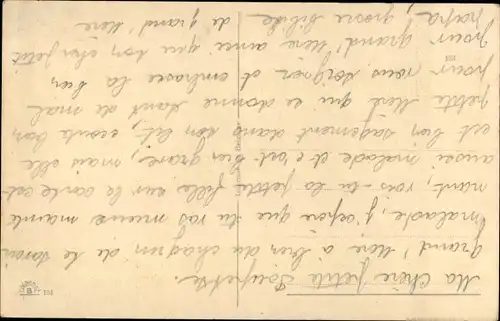 Ma Chère petite Poupette.
Grand' Mère a bien du chagrin de te savoir
malade, j'espère que tu vas mieux mainte
nant, vois-tu la petite fille sur la carte est
aussi malade et c'est bien grave, mais elle
est bien sagement dans son lit, écoute bien
petite Mère qui se donne tant de mal
pour vous soigner et embrasse la bien
pour grand' Mère ainsi que ton cher petit
papa, grosse bibide de grand' Mère
B
155